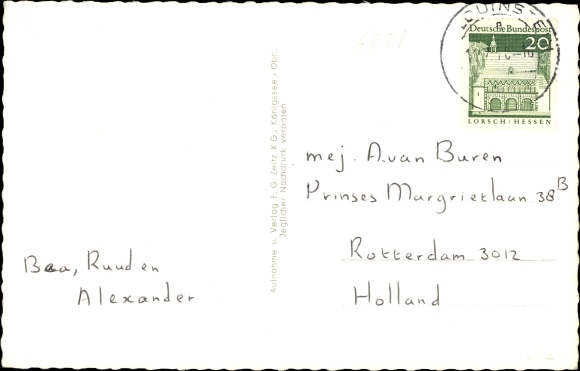 Deutsche Bundespost
20
LORSCH/HESSEN
Aufnahme u. Verlag F. G. Zeitz K G., Königssee / Obb.
Jeglicher Nachdruck verboten
mej. A. van Buren
Prinses Margrietlaan 38 B
Rotterdam 3012
Holland
Bea, Ruud en
Alexander